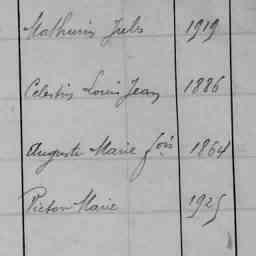 Mathurin Jules 1919
Celestin Louis Jean 1886
Auguste Marie fois 1864
Victor Marie 1925